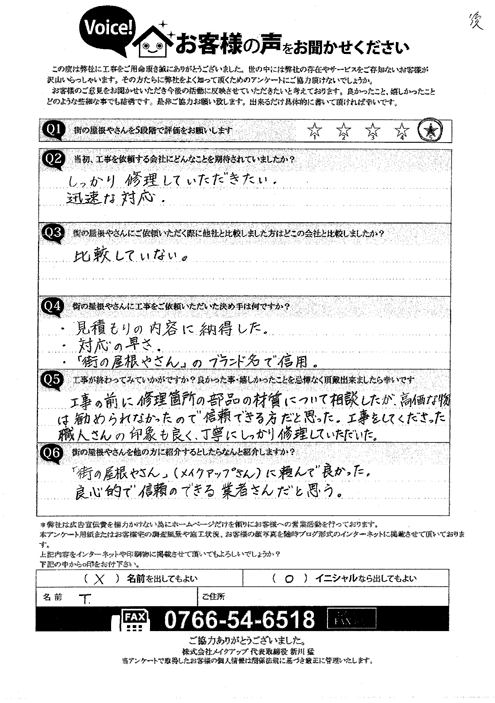 Voice!
お客様の声をお聞かせください
この度は弊社に工事をご用命頂き誠にありがとうございました。世の中には弊社の存在やサービスをご存知ないお客様が
沢山いらっしゃいます。その方たちに弊社をよく知って頂くためのアンケートにご協力頂けないでしょうか。
お客様のご意見をお聞かせいただき今後の活動に反映させていただきたいと考えております。良かったこと、嬉しかったこと
どのような些細な事でも結構です。是非ご協力お願い致します。出来るだけ具体的に書いて頂ければ幸いです。
Q1 街の屋根やさんを5段階で評価をお願いします
1 2 3 4 5
Q2 当初、工事を依頼する会社にどんなことを期待されていましたか?
しっかり修理していただきたい.
迅速な対応.
Q3 街の屋根やさんにご依頼いただく際に他社と比較しました方はどこの会社と比較しましたか?
比較していない。
Q4 街の屋根やさんに工事をご依頼いただいた決め手は何ですか?
・見積もりの内容に納得した。
・対応の早さ.
・「街の屋根やさん」のブランド名で信用。
Q5 工事が終わってみていかがですか?良かった事・嬉しかったことを忌憚なく頂戴出来ましたら幸いです
工事の前に修理箇所の部品の材質について相談したが、高価な物
は勧められなかったので信頼できる方だと思った。工事をしてくださった
職人さんの印象も良く、丁寧にしっかり修理していただいた。
Q6 街の屋根やさんを他の方に紹介するとしたらなんと紹介しますか?
「街の屋根やさん」(メイクアップさん)に頼んで良かった。
良心的で信頼のできる業者さんだと思う。
※弊社は広告宣伝費を極力かけない為にホームページだけを頼りにお客様への営業活動を行っております。
本アンケート用紙またはお客様宅の調査風景や施工状況、お客様の顔写真を随時ブログ形式のインターネットに掲載させて頂いておりま
す。
上記内容をインターネットや印刷物に掲載させて頂いてもよろしいでしょうか?
下記の中からの印をお付け下さい。
(X)名前を出してもよい
(O)イニシャルなら出してもよい
名前 T.
ご住所
FAX 0766-54-6518
FAX
ご協力ありがとうございました。
株式会社メイクアップ 代表取締役 新川 猛
当アンケートで取得したお客様の個人情報は関係法規に基づき厳正に管理いたします。